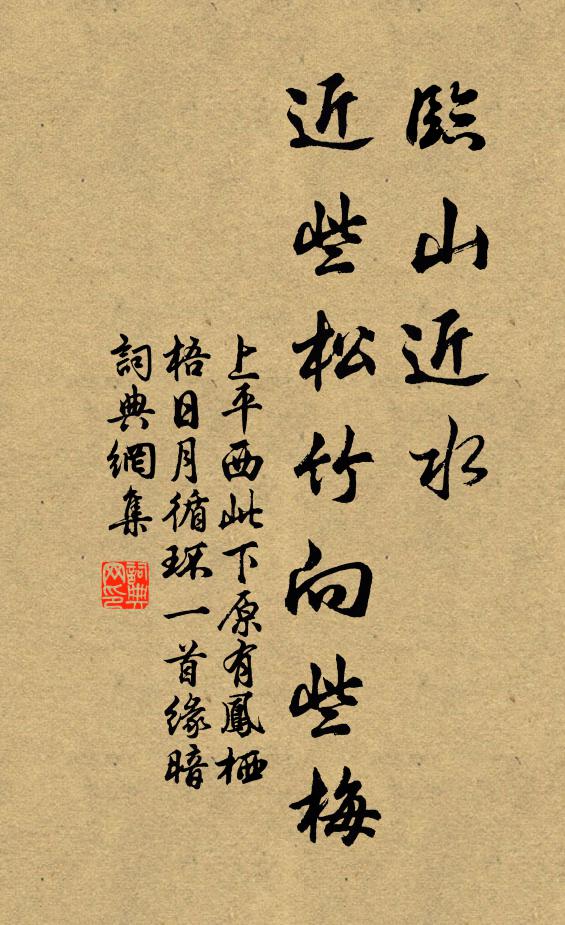 臨山近水
近些松竹向些梅
上平西此下原有鳳栖
梧日月循環一首缘暗
詞典網集
詞典网印